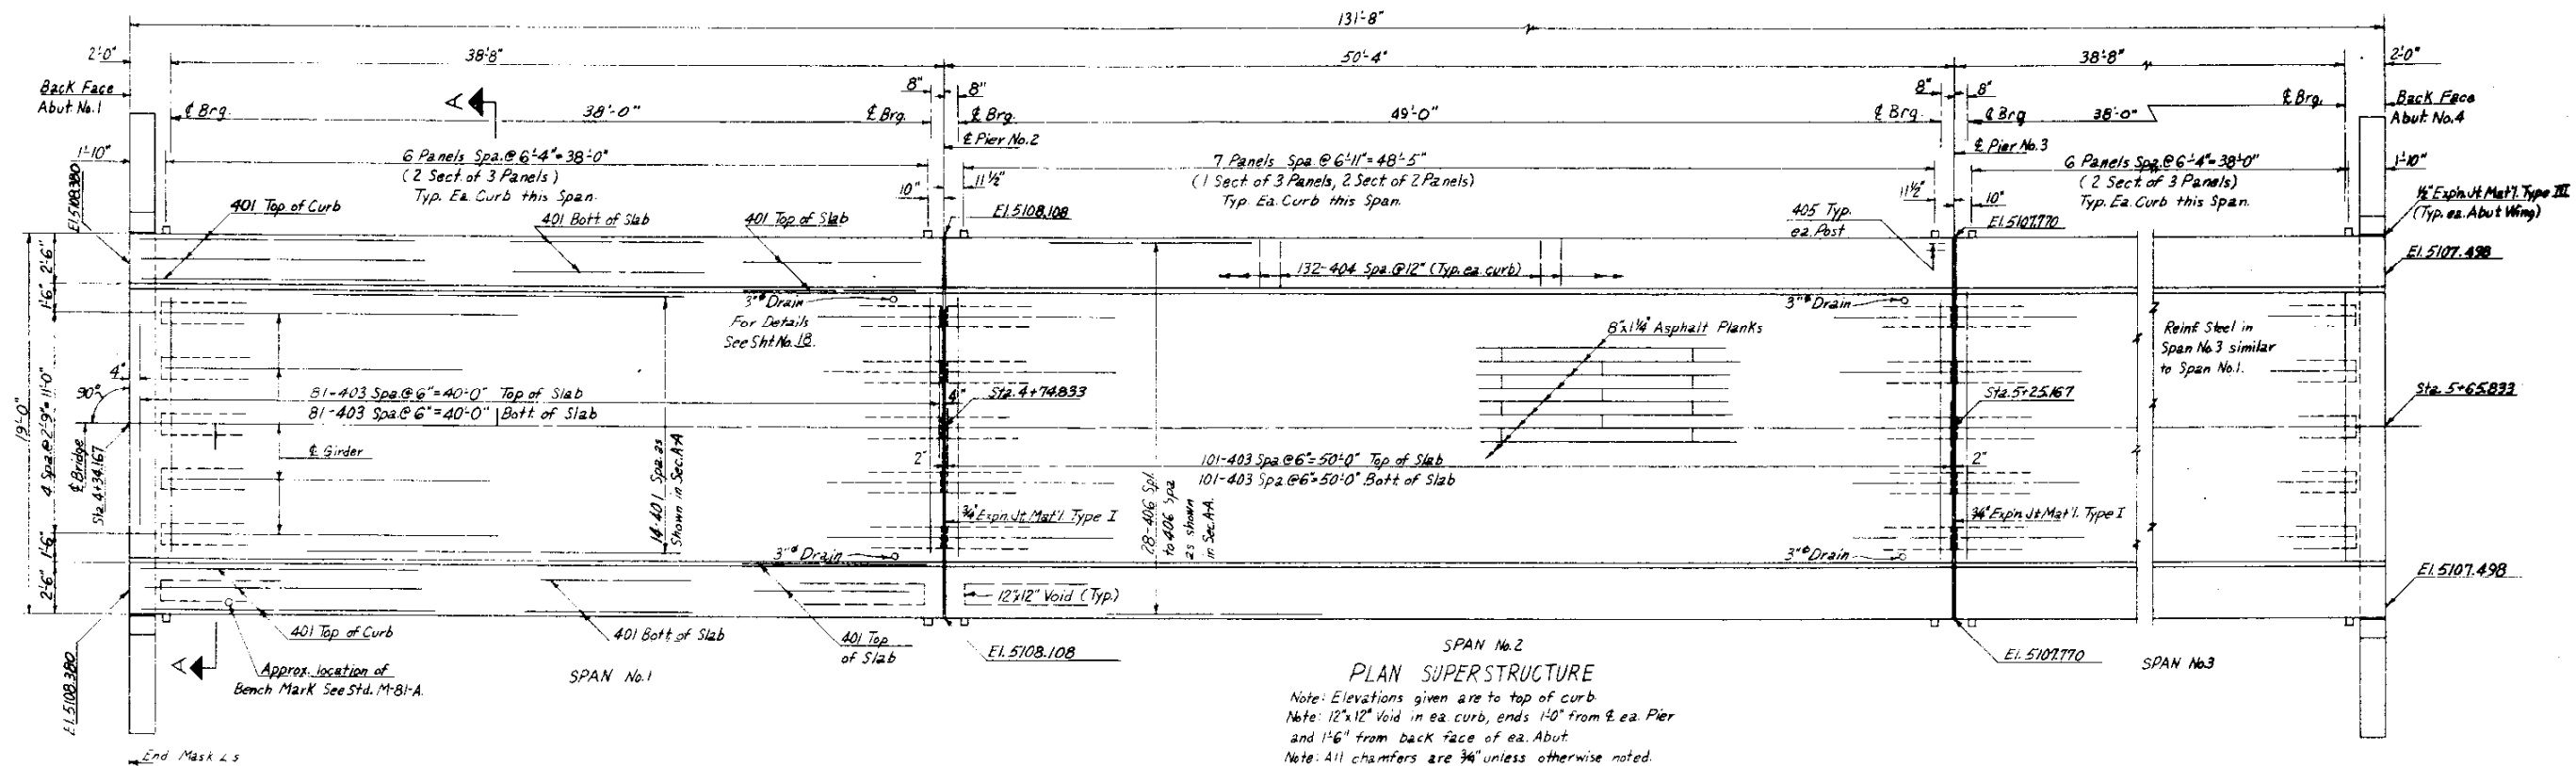 131'-8"
2'-0"
38'-8"
50'-4"
38'-8"
2'-0"
Back Face
Abut. No.1
A
8"
8"
8"
8"
Back Face
Abut. No.4
℄ Brg.
38'-0"
℄ Brg.
℄ Brg.
49'-0"
℄ Brg.
℄ Brg
38'-0"
℄ Brg.
℄ Pier No.2
℄ Pier No.3
1'-10"
6 Panels Spa.@ 6'-4"=38'-0"
(2 Sect. of 3 Panels)
Typ. Ea. Curb this Span.
10"
11½"
7 Panels Spa.@ 6'-11"=48'-5"
(1 Sect. of 3 Panels, 2 Sect. of 2 Panels)
Typ. Ea. Curb this Span.
11½"
10"
6 Panels Spa.@ 6'-4"=38'-0"
(2 Sect. of 3 Panels)
Typ. Ea. Curb this Span.
1'-10"
½" Exp'n. Jt. Mat'l. Type III
(Typ. ea. Abut Wing)
El. 5108.380
401 Top of Curb
401 Bott of Slab
401 Top of Slab
El. 5108.108
405 Typ.
ea. Post
El. 5107.770
El. 5107.498
132-404 Spa.@12" (Typ. ea. curb)
2'-6"
1'-6"
4 Spa.@2'-9"=11'-0"
1'-6"
2'-6"
19'-0"
3"ᶲ Drain
For Details
See Sht No. 18.
3"ᶲ Drain
8"x1¼" Asphalt Planks
Reinf. Steel in
Span No.3 similar
to Span No.1.
4"
90°
81-403 Spa.@ 6"=40'-0" Top of Slab
81-403 Spa.@ 6"=40'-0" Bott of Slab
4"
Sta. 4+74.833
Sta. 5+25.167
Sta. 5+65.833
℄ Bridge
Sta. 4+34.167
℄ Girder
14-401 Spa. as
Shown in Sec. A-A
2"
101-403 Spa.@6"=50'-0" Top of Slab
101-403 Spa.@6"=50'-0" Bott of Slab
2"
¾" Exp'n. Jt. Mat'l. Type I
28-406 Spl.
to 406 Spa
as shown
in Sec. A-A.
¾" Exp'n. Jt. Mat'l. Type I
3"ᶲ Drain
3"ᶲ Drain
12"x12" Void (Typ.)
El. 5107.498
401 Top of Curb
401 Bott of Slab
401 Top
of Slab
El. 5108.108
El. 5107.770
El. 5108.380
A
Approx. location of
Bench Mark See Std. M-81-A.
SPAN No.1
SPAN No.2
SPAN No.3
PLAN SUPERSTRUCTURE
Note: Elevations given are to top of curb.
Note: 12"x12" Void in ea. curb, ends 1'-0" from ℄ ea. Pier
and 1'-6" from back face of ea. Abut.
Note: All chamfers are ¾" unless otherwise noted.
End Mask